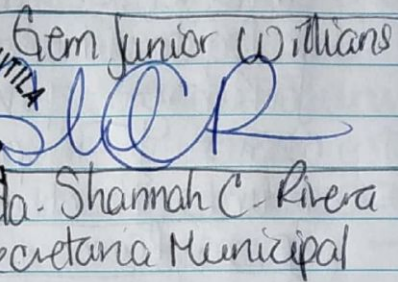 Gem Junior Willians
UTILA
da. Shannah C. Rivera
ecretaria Municipal